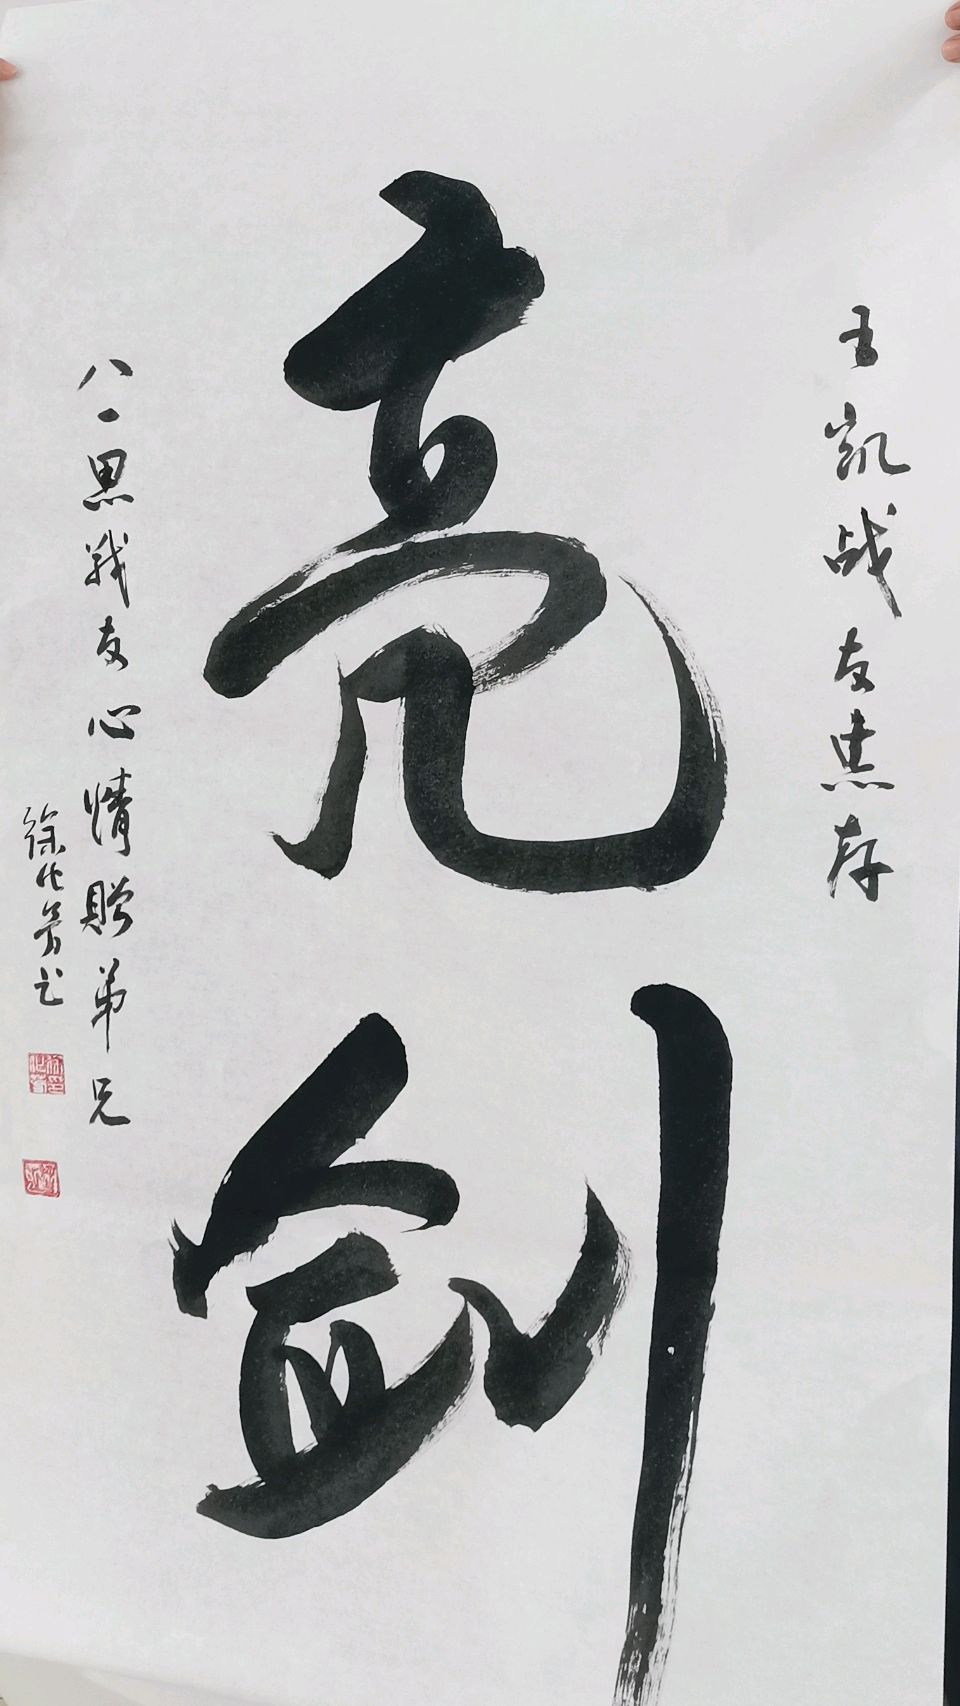 王凯战友惠存
亮剑
八一思战友心情赠弟兄
徐